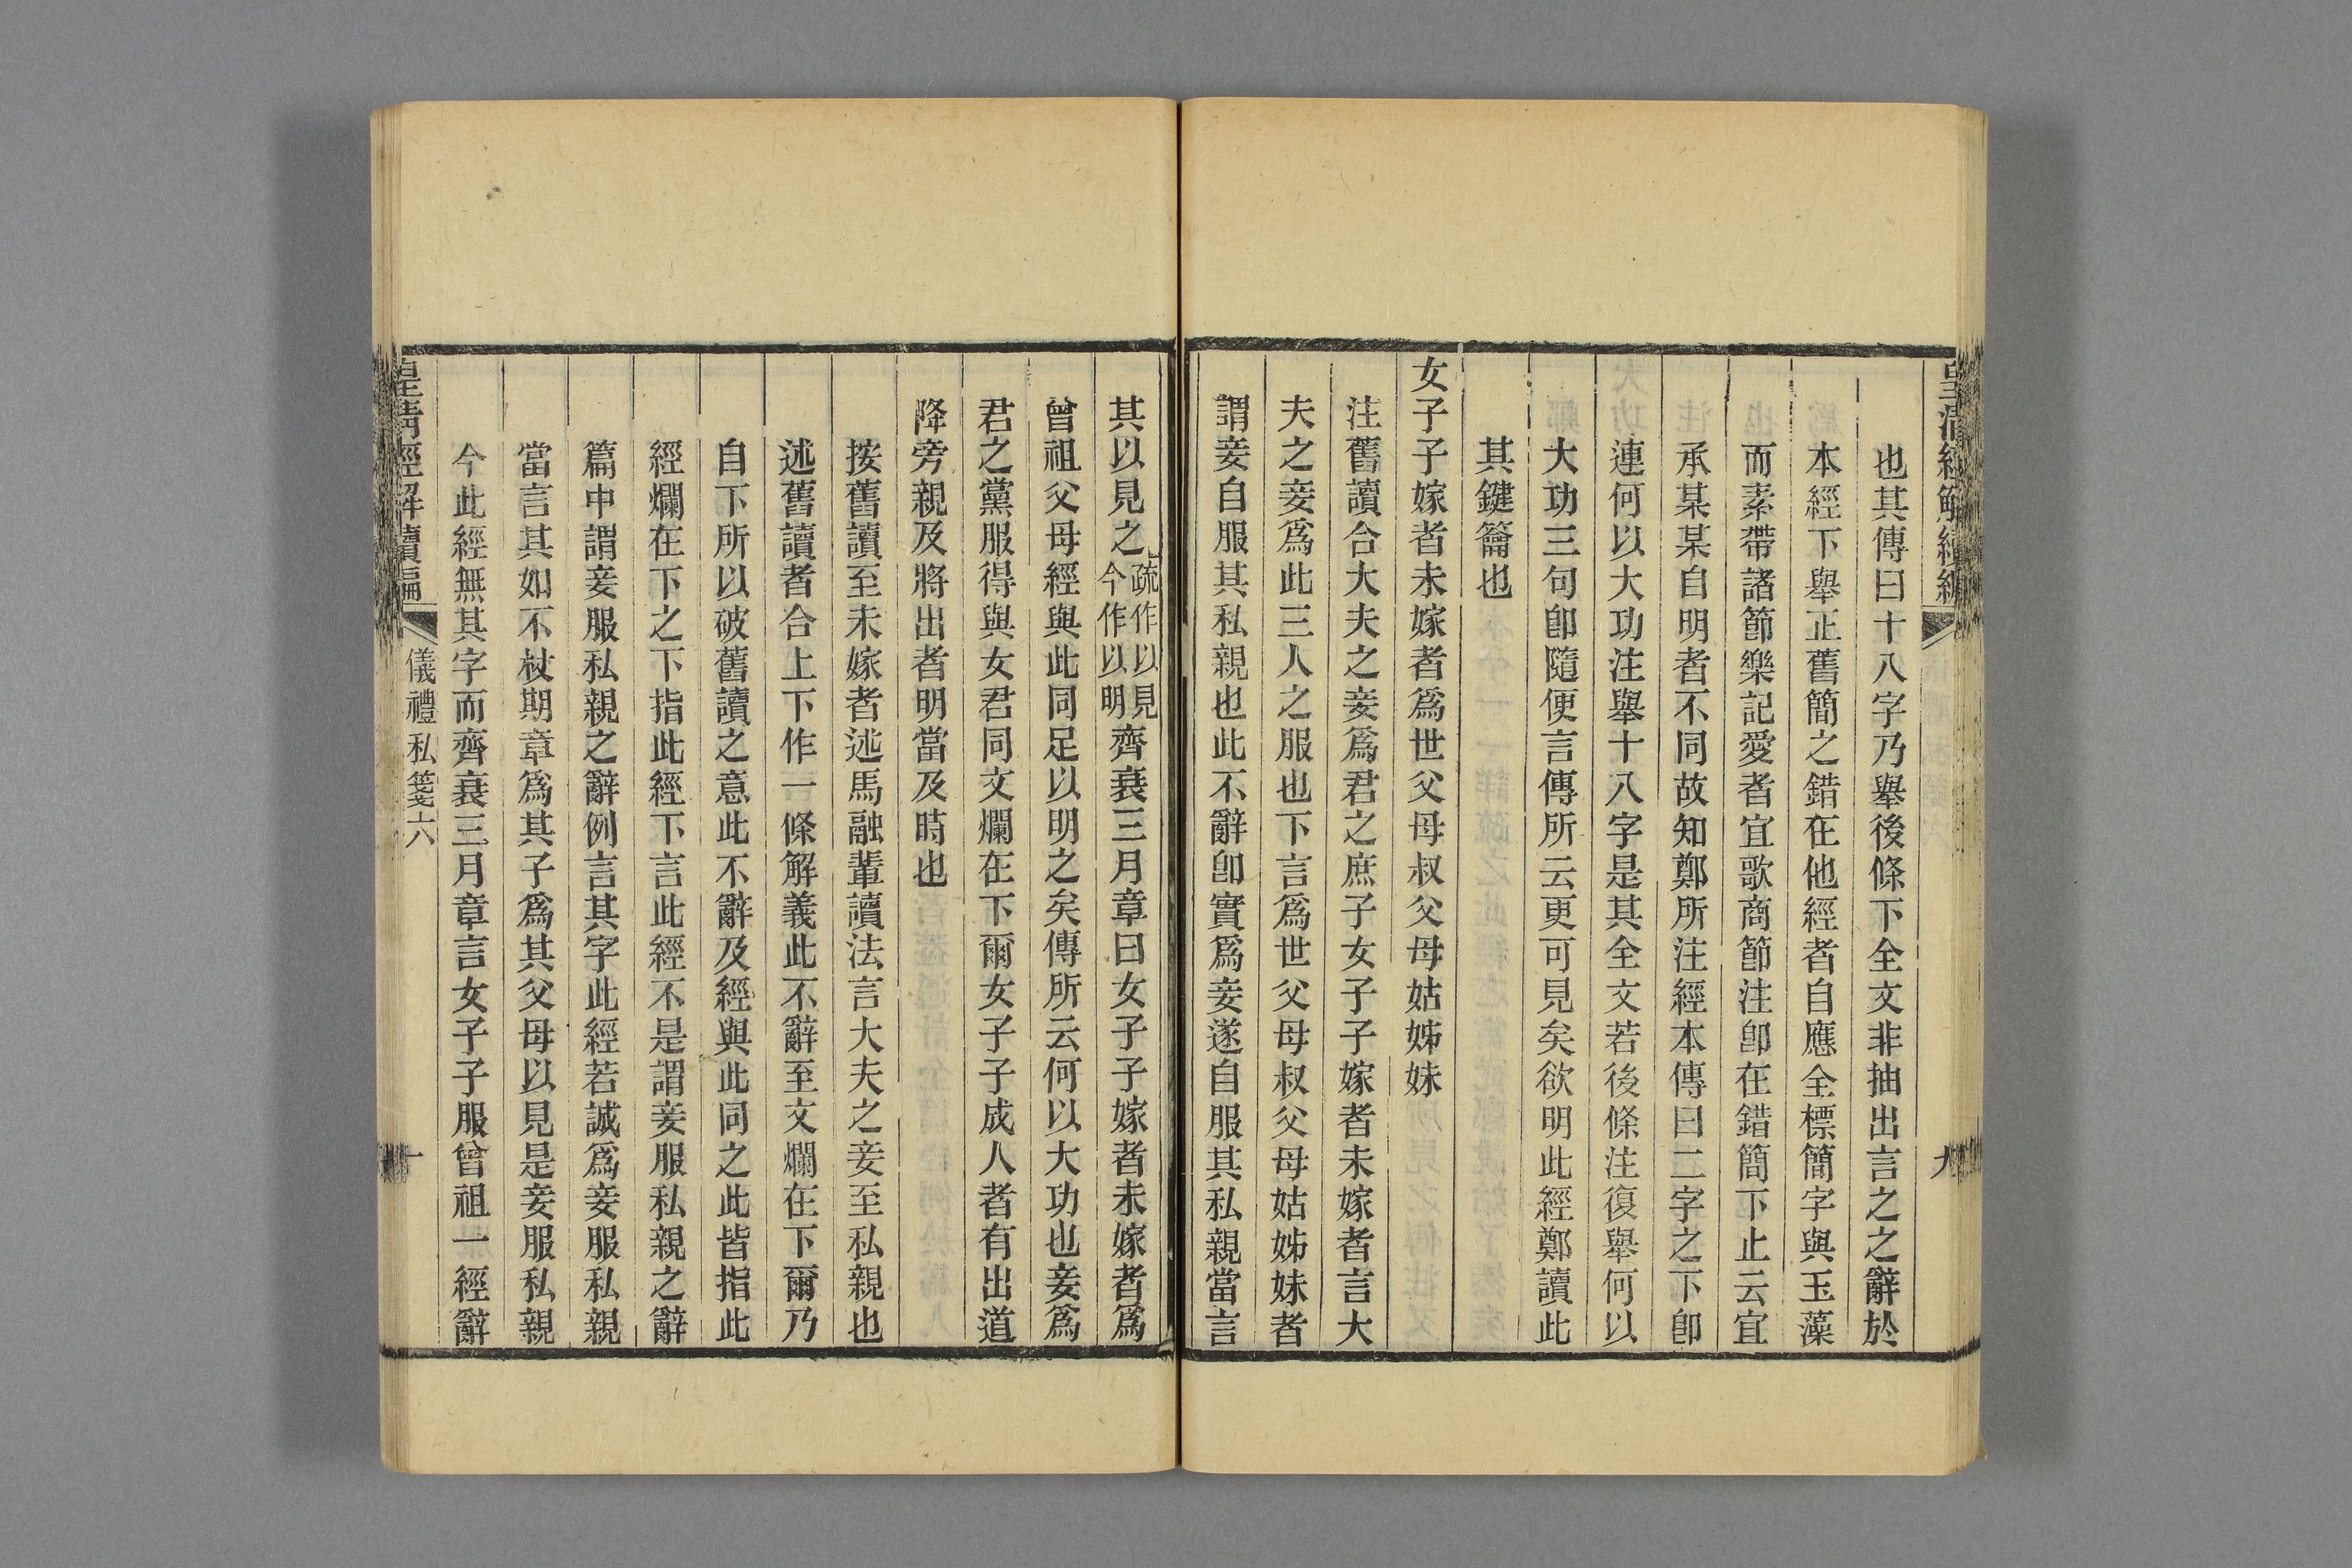 皇清經解續編
九
也其傳曰十八字乃舉後條下全文非抽出言之之辭於
本經下舉正舊簡之錯在他經者自應全標簡字與玉藻
而素帶諸節樂記愛者宜歌商節注卽在錯簡下止云宜
承某某自明者不同故知鄭所注經本傳曰二字之下卽
連何以大功注舉十八字是其全文若後條注復舉何以
大功三句卽隨便言傳所云更可見矣欲明此經鄭讀此
其鍵籥也
女子子嫁者未嫁者爲世父母叔父母姑姊妹
注舊讀合大夫之妾爲君之庶子女子子嫁者未嫁者言大
夫之妾爲此三人之服也下言爲世父母叔父母姑姊妹者
謂妾自服其私親也此不辭卽實爲妾遂自服其私親當言
其以見之疏作以見今作以明齊衰三月章曰女子子嫁者未嫁者爲
曾祖父母經與此同足以明之矣傳所云何以大功也妾爲
君之黨服得與女君同文爛在下爾女子子成人者有出道
降旁親及將出者明當及時也
按舊讀至未嫁者述馬融輩讀法言大夫之妾至私親也
述舊讀者合上下作一條解義此不辭至文爛在下爾乃
自下所以破舊讀之意此不辭及經與此同之此皆指此
經爛在下之下指此經下言此經不是謂妾服私親之辭
篇中謂妾服私親之辭例言其字此經若誠爲妾服私親
當言其如不杖期章爲其子爲其父母以見是妾服私親
今此經無其字而齊衰三月章言女子子服曾祖一經辭
皇清經解續編
儀禮私箋六
十